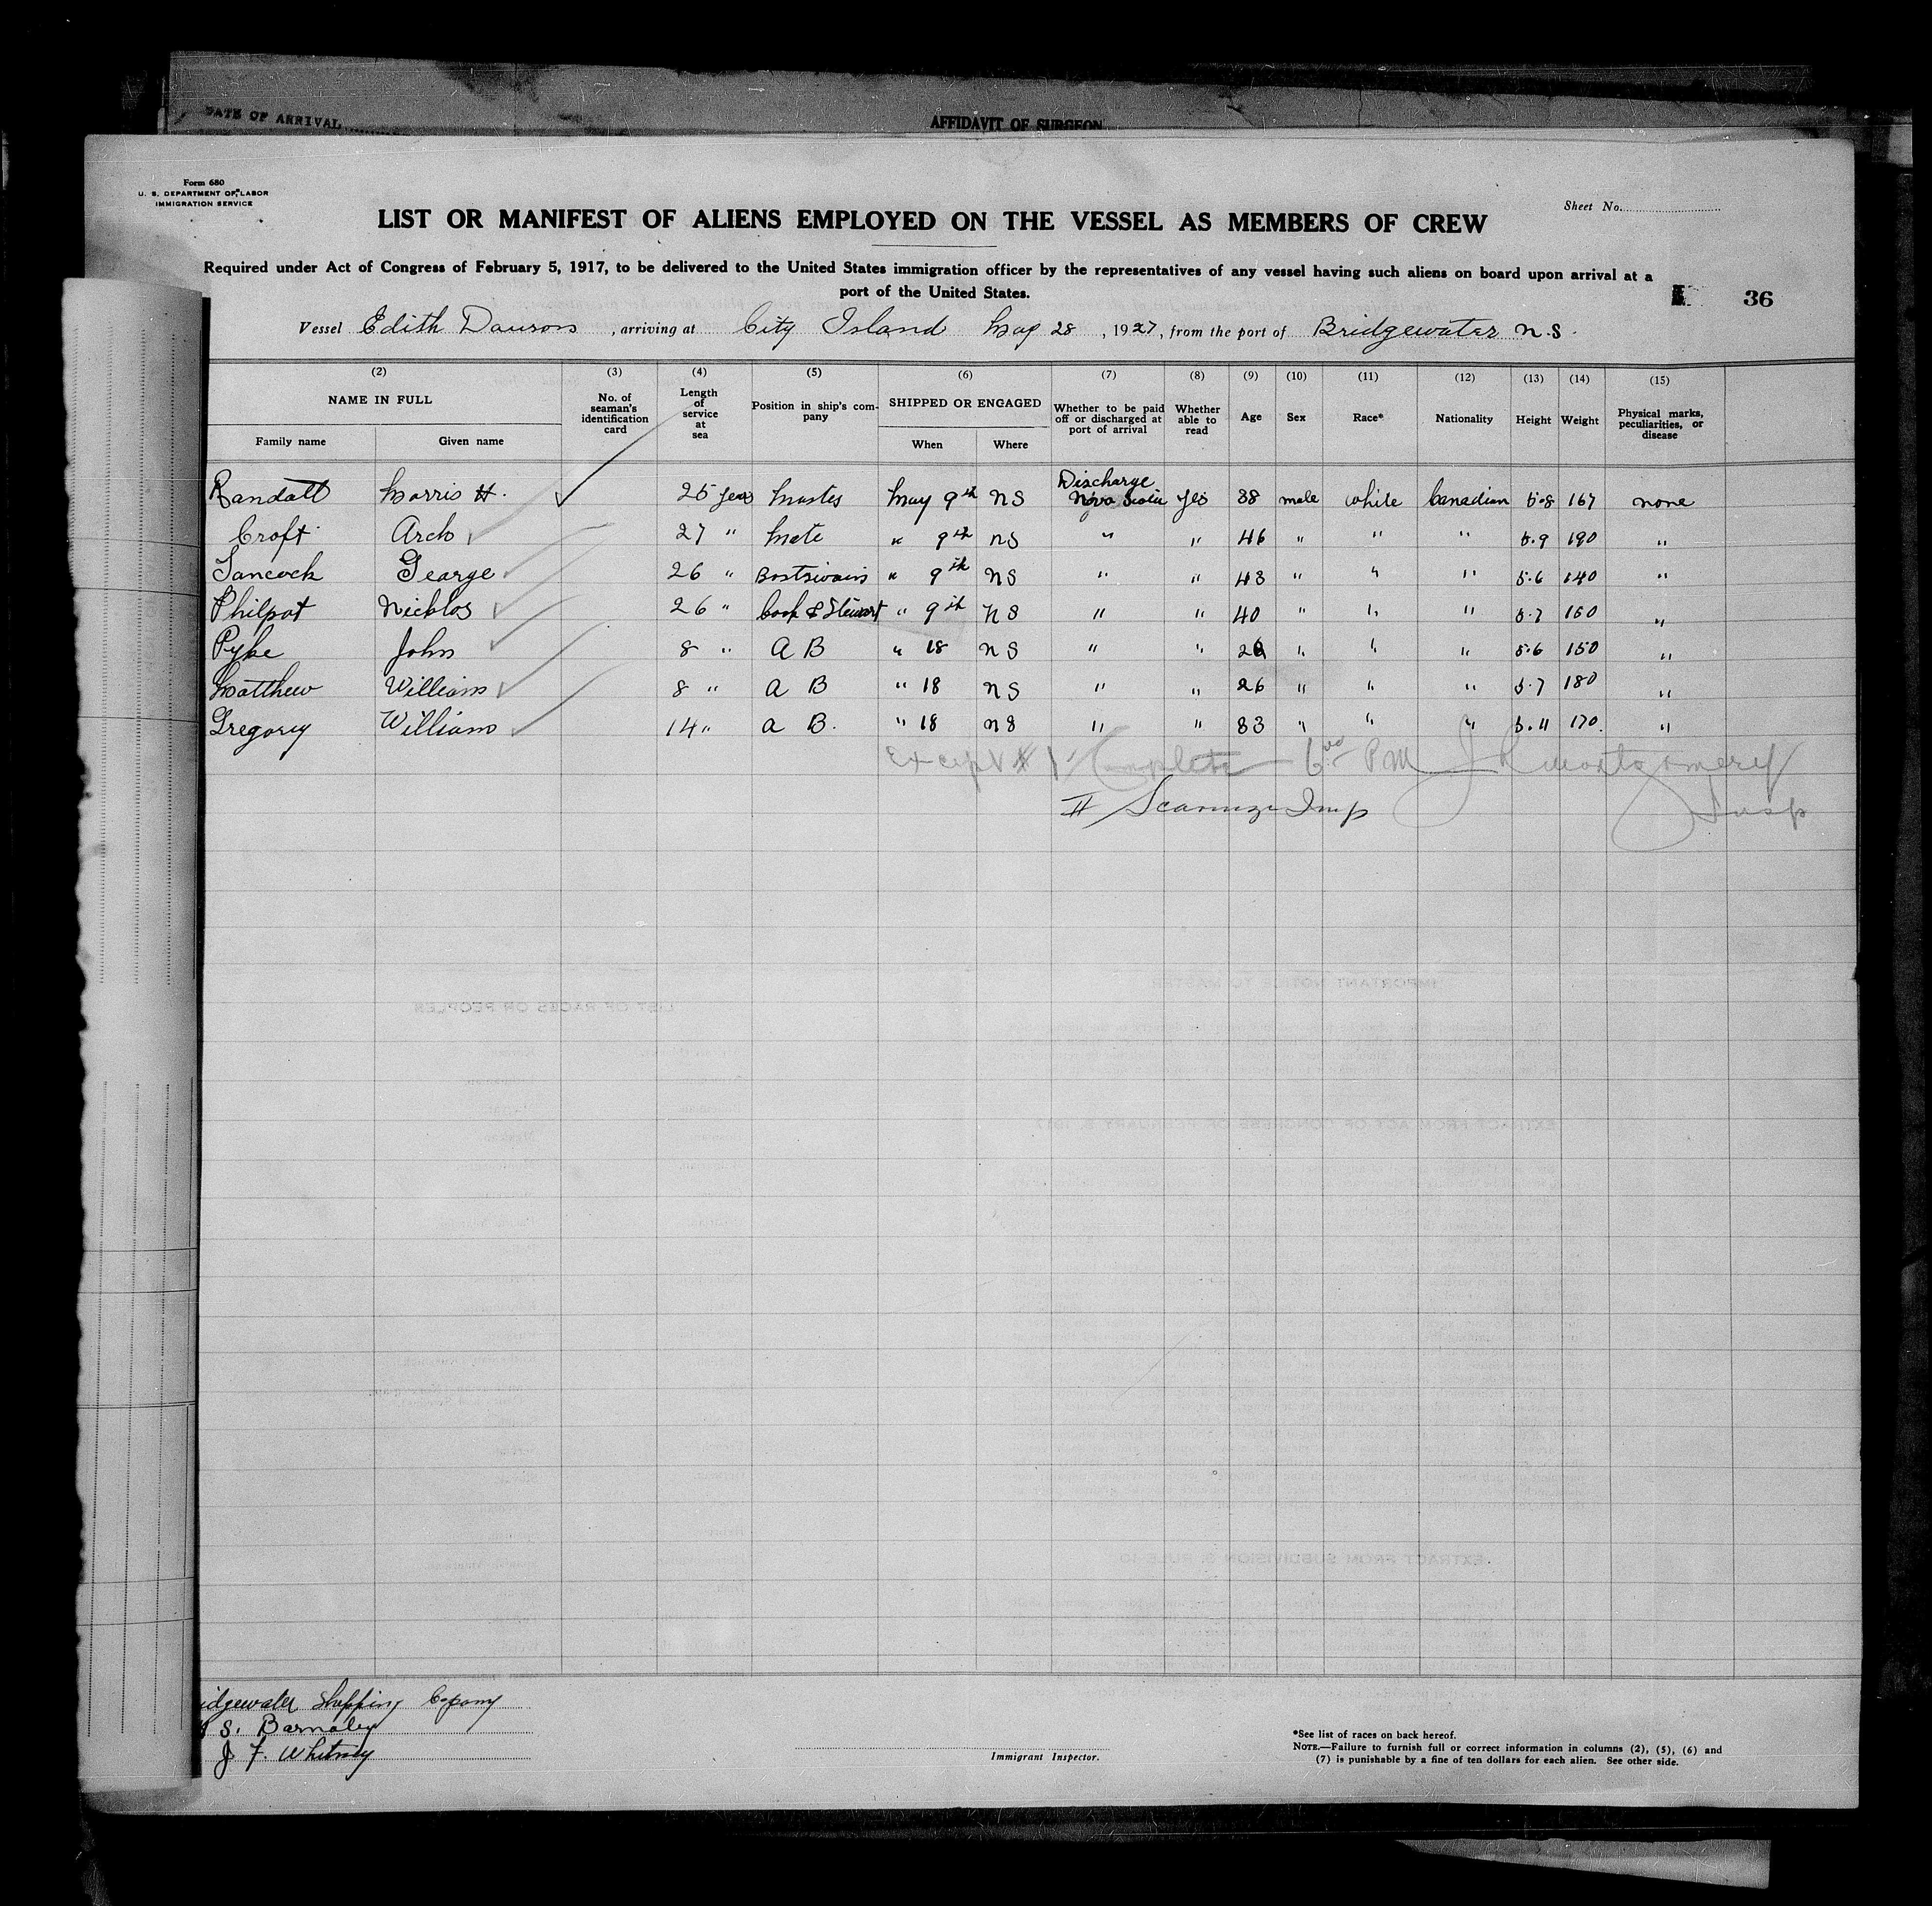 DATE OF ARRIVAL
AFFIDAVIT OF SURGEON
Form 680
U. S. DEPARTMENT OF LABOR
IMMIGRATION SERVICE
Sheet No.
LIST OR MANIFEST OF ALIENS EMPLOYED ON THE VESSEL AS MEMBERS OF CREW
Required under Act of Congress of February 5, 1917, to be delivered to the United States immigration officer by the representatives of any vessel having such aliens on board upon arrival at a
port of the United States.
36
Vessel Edith Dawson, arriving at City Island May 28, 1927, from the port of Bridgewater N.S.
(2) (3) (4) (5) (6) (7) (8) (9) (10) (11) (12) (13) (14) (15)
NAME IN FULL Family name Given name
No. of seaman's identification card
Length of service at sea
Position in ship's company
SHIPPED OR ENGAGED When Where
Whether to be paid off or discharged at port of arrival
Whether able to read
Age Sex Race* Nationality Height Weight
Physical marks, peculiarities, or disease
Randall Morris H. 25 years Master May 9th NS Discharge Nova Scotia yes 38 male white Canadian 5-8 167 none
Croft Arch 27 " Mate " 9th NS " " 46 " " " 5.9 190 "
George 26 " Boatswain " 9th NS " " 43 " " " 5.6 140 "
Philpot Nicklos 26 " Cook & Stewart " 9th NS " " 40 " " " 5.7 150 "
Pyke John 8 " A B " 18 NS " " 26 " " " 5.6 150 "
Matthew William 8 " A B " 18 NS " " 26 " " " 5.7 180 "
Gregory William 14 " A B. " 18 NS " " 33 " " " 5.11 170. "
Except # 1 Complete 6 00 PM J R Montgomery
Insp
II Insp
LIST OF RACES OR PEOPLES
IMPORTANT NOTICE TO MASTER
EXTRACT FROM ACT OF CONGRESS OF FEBRUARY 5, 1917
EXTRACT FROM SUBDIVISION 5, RULE 10
idgewater Shipping Copany
S. Barnaby
J F. Whitney
Immigrant Inspector.
*See list of races on back hereof.
NOTE.—Failure to furnish full or correct information in columns (2), (5), (6) and
(7) is punishable by a fine of ten dollars for each alien. See other side.